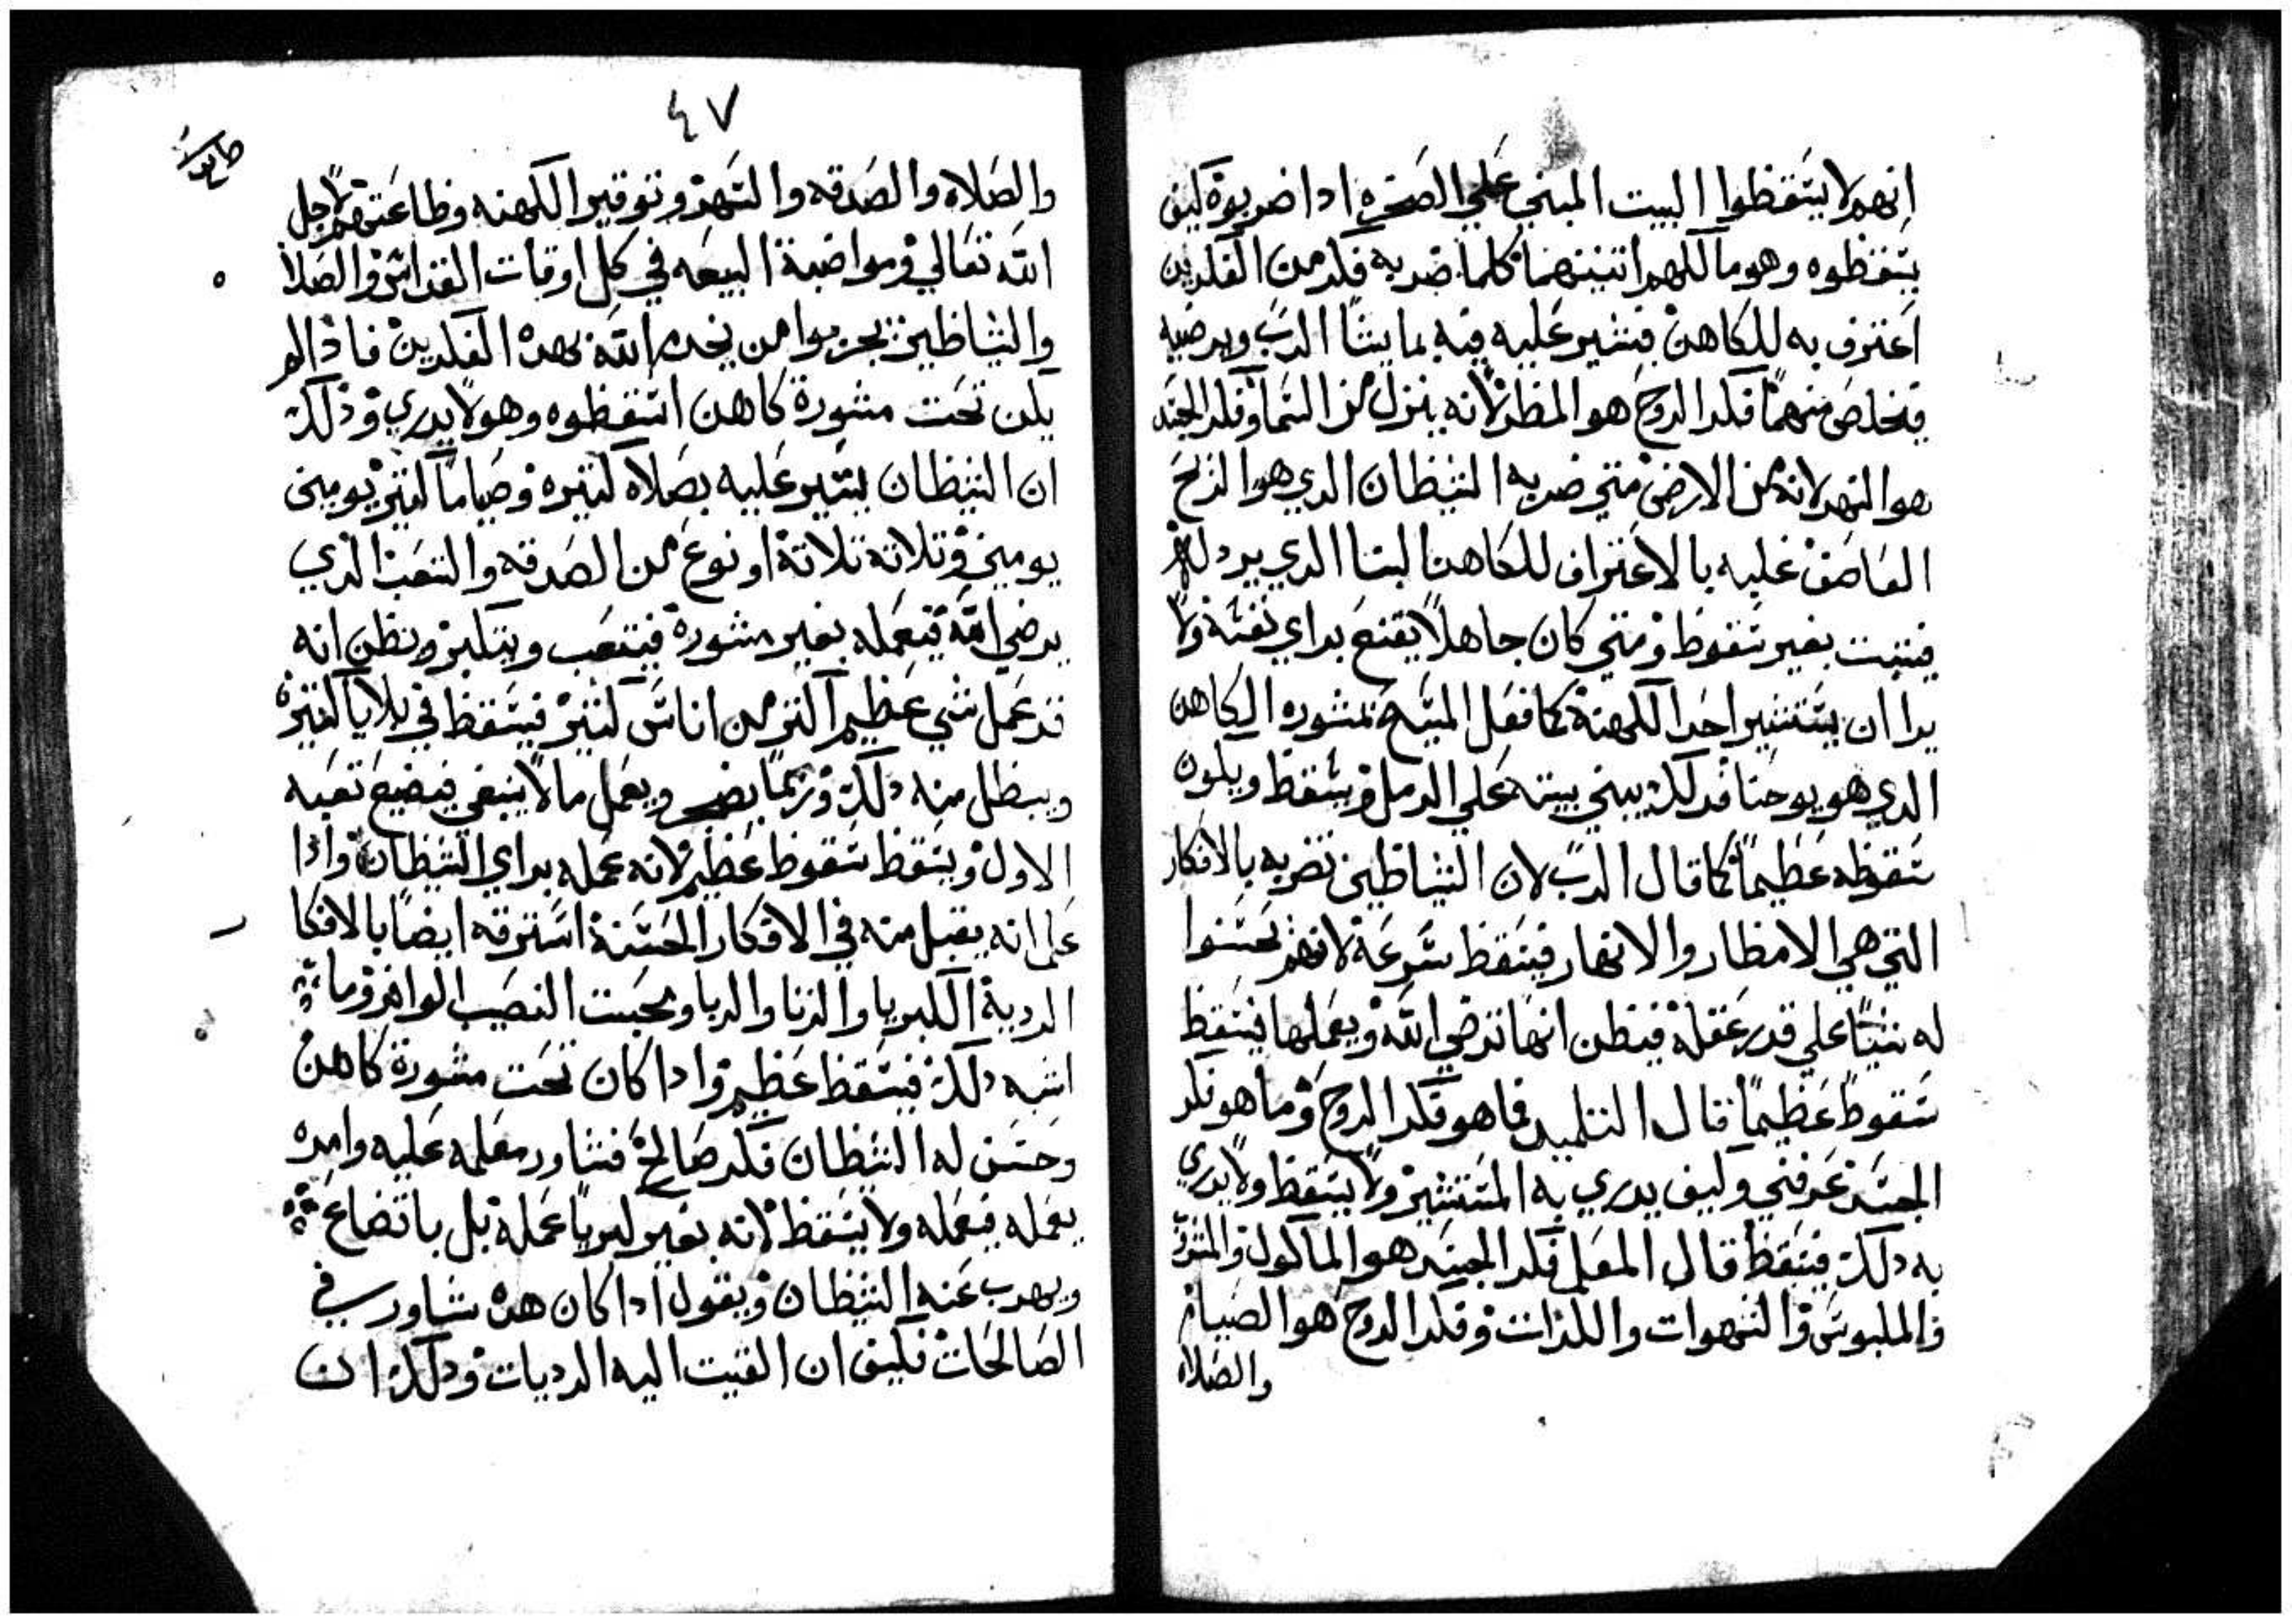 انهم لا يسقطوا البيت المبني علي الصخره ادا ضربوة كيف
يسقطوه وهو مالكهم اتنينهما كلما ضربه فكر من الفكرين
اعترف به للكاهن فيشير عليه فيه بما يشا الرب ويرضيه
فيخلص منهما فكر الروح هو المطر لانه ينزل من السما وفكر الجسد
هو النهر لانه من الارض متي ضربه الشيطان الدي هو الريح
العاصف عليه بالاعتراف للكاهن البنا الدي يرد لهم
فيتبت بغير سقوط ومتي كان جاهلا يقنع براي نفسه ولا
يرا ان يستشير احد الكهنة كما فعل المسيح بمشوره الكاهن
الدي هو يوحنا فدلك يبني بيته علي الرمل ويسقط ويكون
سقوطه عظيما كما قال الرب لان الشياطين تضربه بالافكار
التي هي الامطار والانهار فيسقط سرعة لانهم يحسنوا
له شيا علي قدر عقله فيظن انها ترضي الله ويعملها فيسقط
سقوط عظيما قال التلميد فما هو فكر الروح وما هو فكر
الجسد عرفني وكيف يدري به المستشير ولا يسقط ولا يدري
به دلك فيسقط قال المعلم فكر الجسد هو الماكول والمشروب
والملبوس والشهوات واللذات وفكر الروح هو الصيام
والصلاه
٤٧
والصلاه والصدقه والسهر وتوقير الكهنه وطاعتهم لاجل
الله تعالي ومواضبة البيعه في كل اوقات القداس والصلاة
والشياطين يجربوا من يخدم الله بهده الفكرين فاذا لم
يكن تحت مشورة كاهن اسقطوه وهو لا يدري وذلك
ان الشيطان يشير عليه بصلاه كتيره وصياما كتير يومين
يومين وتلاتة تلاتة او نوع من الصدقه والتعب الذي
يرضي الله فيعمله بغير مشورة فيتعب ويتكبر ويظن انه
قد عمل شي عظيم اكتر من اناس كتير فيسقط في بلايا كتيره
ويبطل منه دلك وربما يضجر ويعمل ما لا ينبغي فيضيع تعبه
الاول ويسقط سقوط عظيم لانه عمله براي الشيطان واذا
علم انه يقبل منه في الافكار الحسنة استرقه ايضا بالافكا
الردية الكبريا والزنا والربا ومحبت النصيب الوافر وما
اشبه دلك فيسقط عظيم وادا كان تحت مشورة كاهن
وحسن له الشيطان فكر صالح فشاور معلمه عليه وامره
يعمله فيعمله ولا يسقط لانه بغير كبريا عمله بل باتضاع
ويهرب عنه الشيطان ويقول ادا كان هدا شاور في
الصالحات فكيف ان القيت اليه الرديات ودلك ان